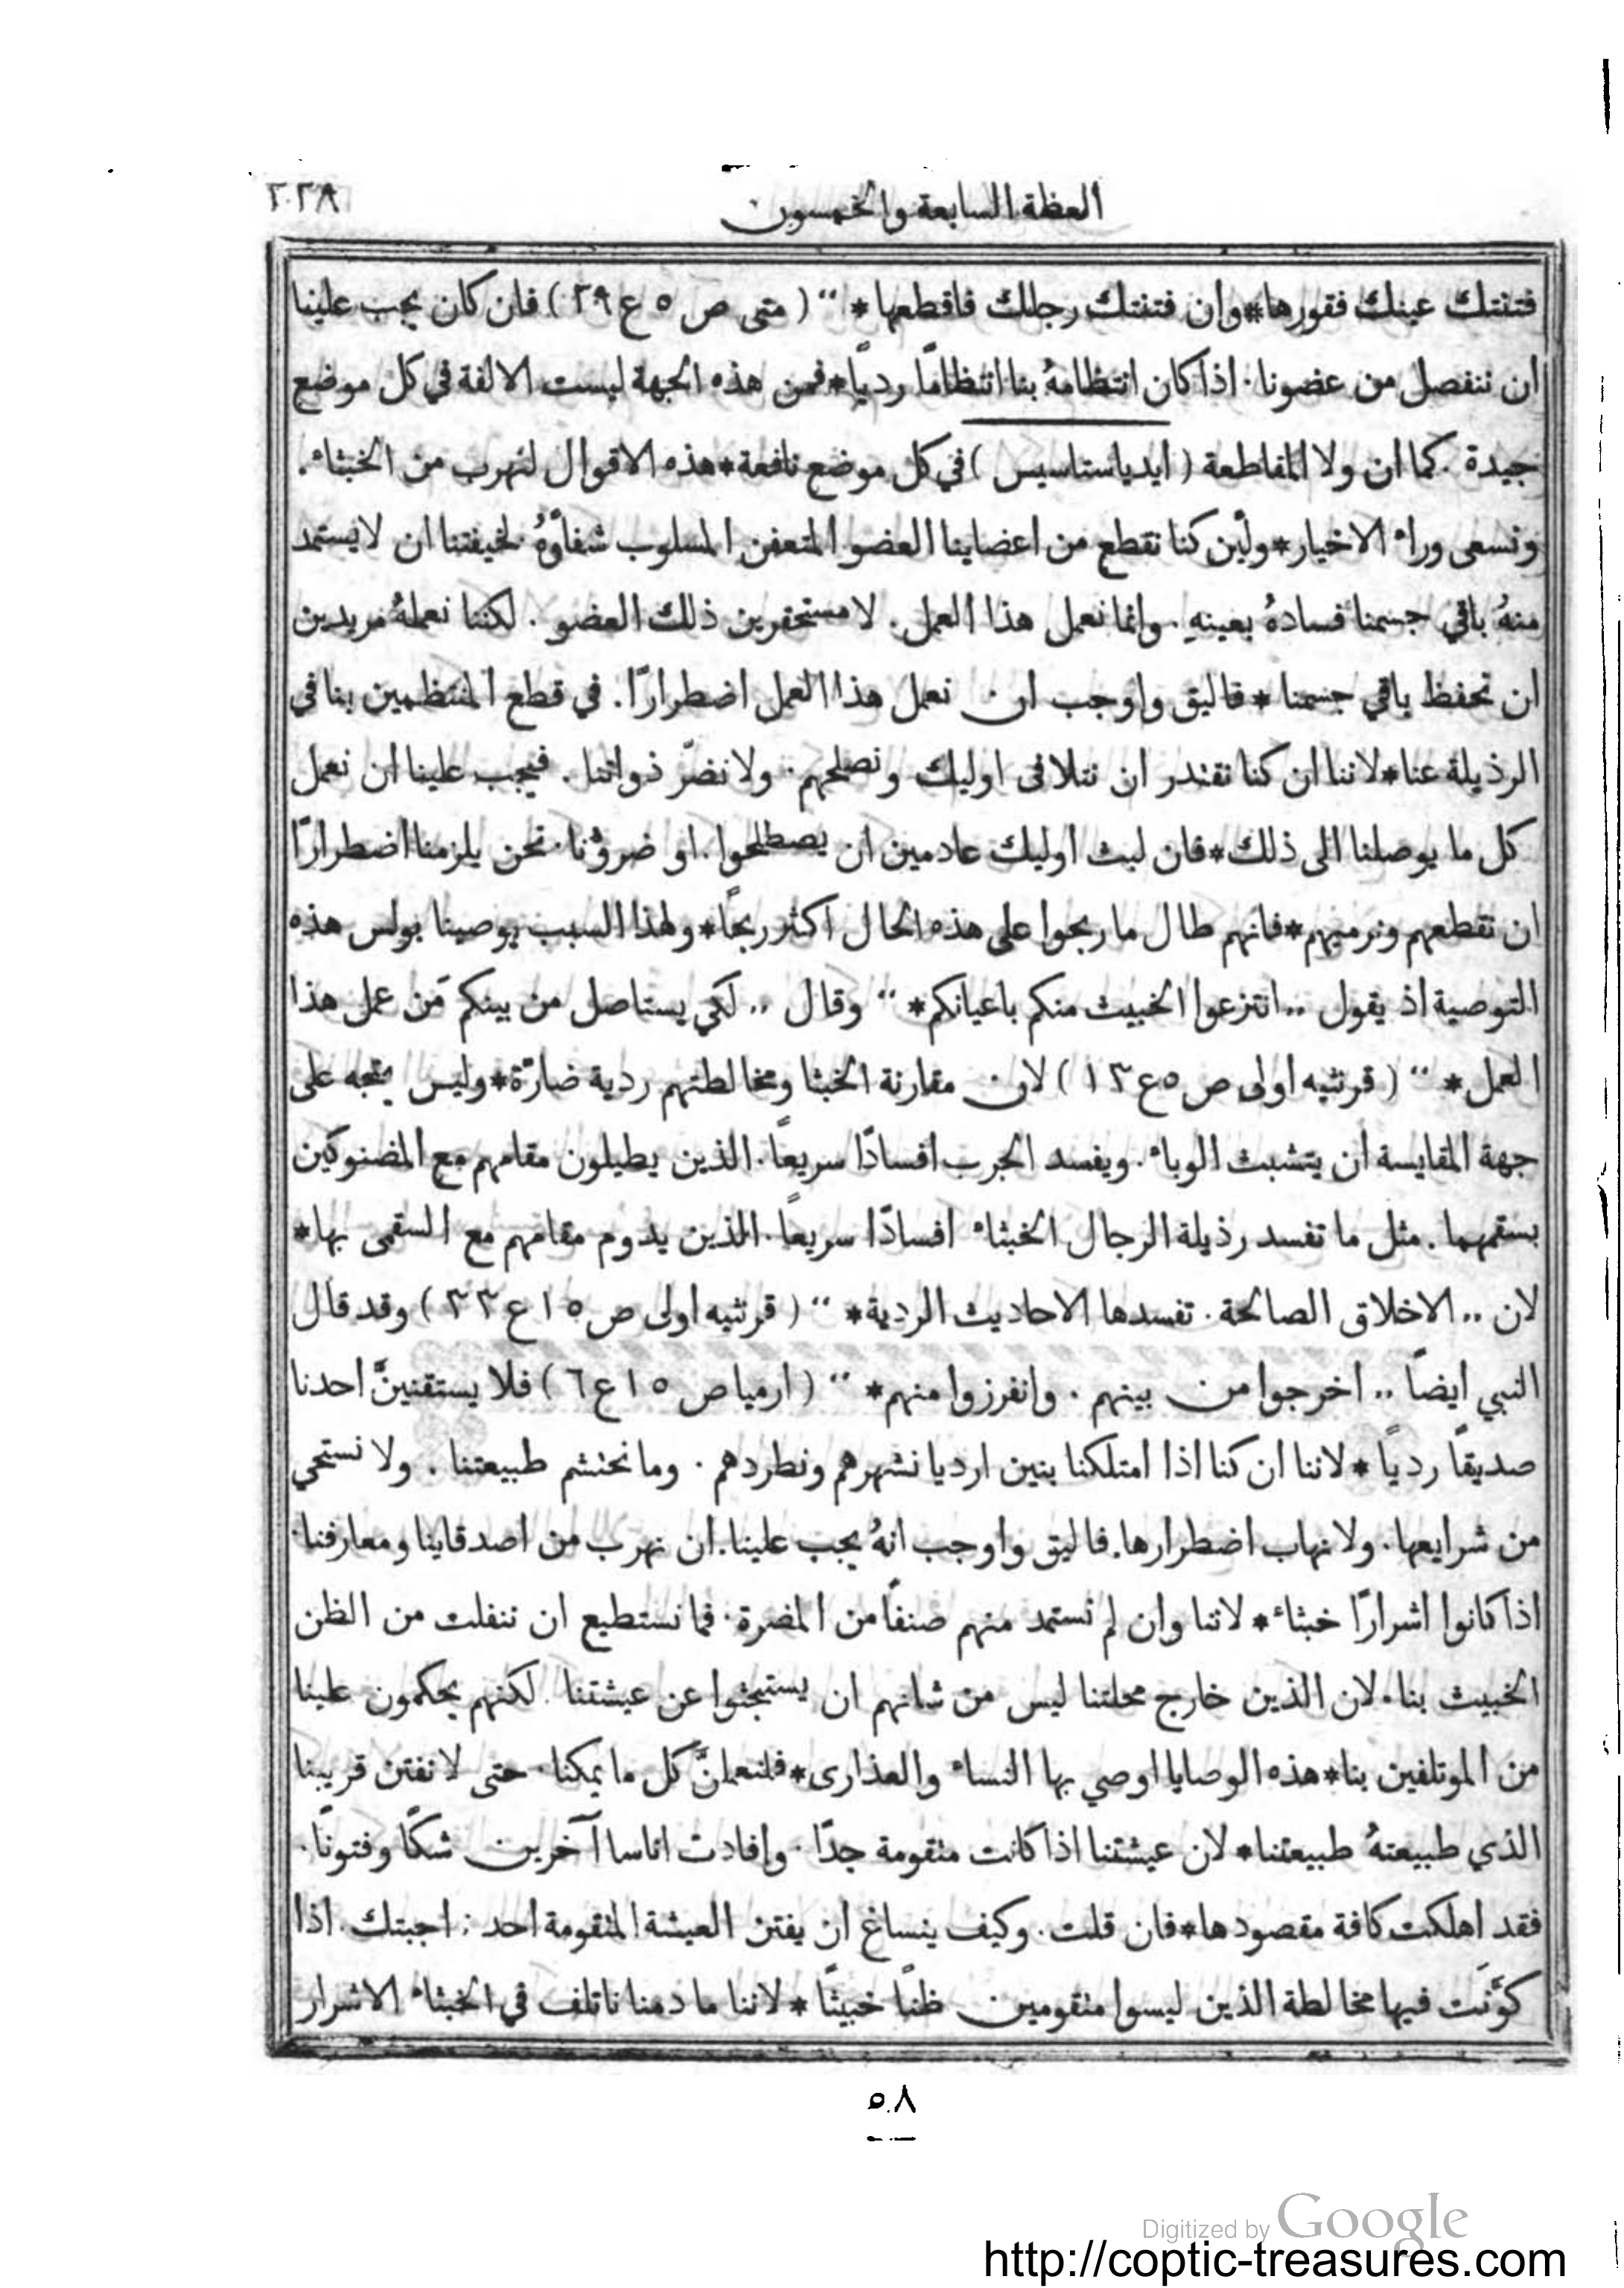 العظة السابعة والخمسون
فتنتك عينك فقورها*وان فتنتك رجلك فاقطعها* ‘‘ (متى ص ٥ ع ٢٩) فان كان يجب علينا
ان ننفصل من عضونا. اذا كان انتظامهُ بنا انتظامًا رديًا*فمن هذه الجهة ليست الالفة في كل موضع
جيدة. كما ان ولا المقاطعة (ايدياستاسيس) في كل موضع نافعة*هذه الاقوال لنهرب من الخبثاء.
ونسعى وراء الاخيار*ولَين كنا نقطع من اعضاينا العضو المتعفن المسلوب شفاوَهُ لخيفتنا ان لا يستمد
منهُ باقي جسمنا فسادهُ بعينهِ. وانما نعمل هذا العمل. لا مستحقرين ذلك العضو. لكننا نعملهُ مريدين
ان نحفظ باقي جسمنا*فاليق واوجب ان نعمل هذا العمل اضطرارًا. في قطع المنتظمين بنا في
الرذيلة عنا*لاننا ان كنا نقتدر ان نتلافى اوليك ونصلحهم. ولا نضرّ ذواتنا. فيجب علينا ان نعمل
كل ما يوصلنا الى ذلك*فان لبث اوليك عادمين ان يصطلحوا. او ضرونا. نحن يلزمنا اضطرارًا
ان نقطعهم ونرميهم*فانهم طال ما ربحوا على هذه الحال اكثر ربحًا*ولهذا السبب يوصينا بولس هذه
التوصية اذ يقول ,, انتزعوا الخبيث منكم باعيانكم* ‘‘ وقال ,, لكي يستاصل من بينكم مَن عمل هذا
العمل* ‘‘ (قرنثيه اولى ص ٥ ع ١٣) لان مقارنة الخبثا ومخالطتهم ردية ضارّة*وليس يتجه على
جهة المقايسة ان يتشبث الوباء. ويفسد الجرب افسادًا سريعًا. الذين يطيلون مقامهم مع المضنوكين
بسقمهما. مثل ما تفسد رذيلة الرجال الخبثاء افسادًا سريعًا. الذين يدوم مقامهم مع السقمى بها*
لان ,, الاخلاق الصالحة. تفسدها الاحاديث الردية* ‘‘ (قرنثيه اولى ص ١٥ ع ٣٣) وقد قال
النبي ايضًا ,, اخرجوا من بينهم. وانفرزوا منهم* ‘‘ (ارميا ص ١٥ ع ٦) فلا يستقنينَّ احدنا
صديقًا رديًا*لاننا ان كنا اذا امتلكنا بنين ارديا نشهرهم ونطردهم. وما نحتشم طبيعتنا. ولا نستحي
من شرايعها. ولا نهاب اضطرارها. فاليق واوجب انهُ يجب علينا. ان نهرب من اصدقاينا ومعارفنا.
اذا كانوا اشرارًا خبثاء*لاننا وان لم نستمد منهم صنفًا من المضرة. فما نستطيع ان ننفلت من الظن
الخبيث بنا. لان الذين خارج محلتنا ليس من شانهم ان يستبحثوا عن عيشتنا. لكنهم يحكمون علينا
من الموتلفين بنا*هذه الوصايا اوصي بها النساء والعذارى*فلنعملنَّ كل ما يمكنا. حتى لا نفتن قريبنا
الذي طبيعتهُ طبيعتنا*لان عيشتنا اذا كانت متقومة جدًا. وافادت اناسا آخرين شكًا وفتونًا.
فقد اهلكت كافة مقصودها*فان قلت. وكيف ينساغ ان يفتن العيشة المتقومة احد: اجبتك. اذا
كوَّنَت فيها مخالطة الذين ليسوا متقومين ظنًا خبيثًا*لاننا ما دمنا ناتلف في الخبثاء الاشرار
٥٠٨
Digitized by Google
http://coptic-treasures.com